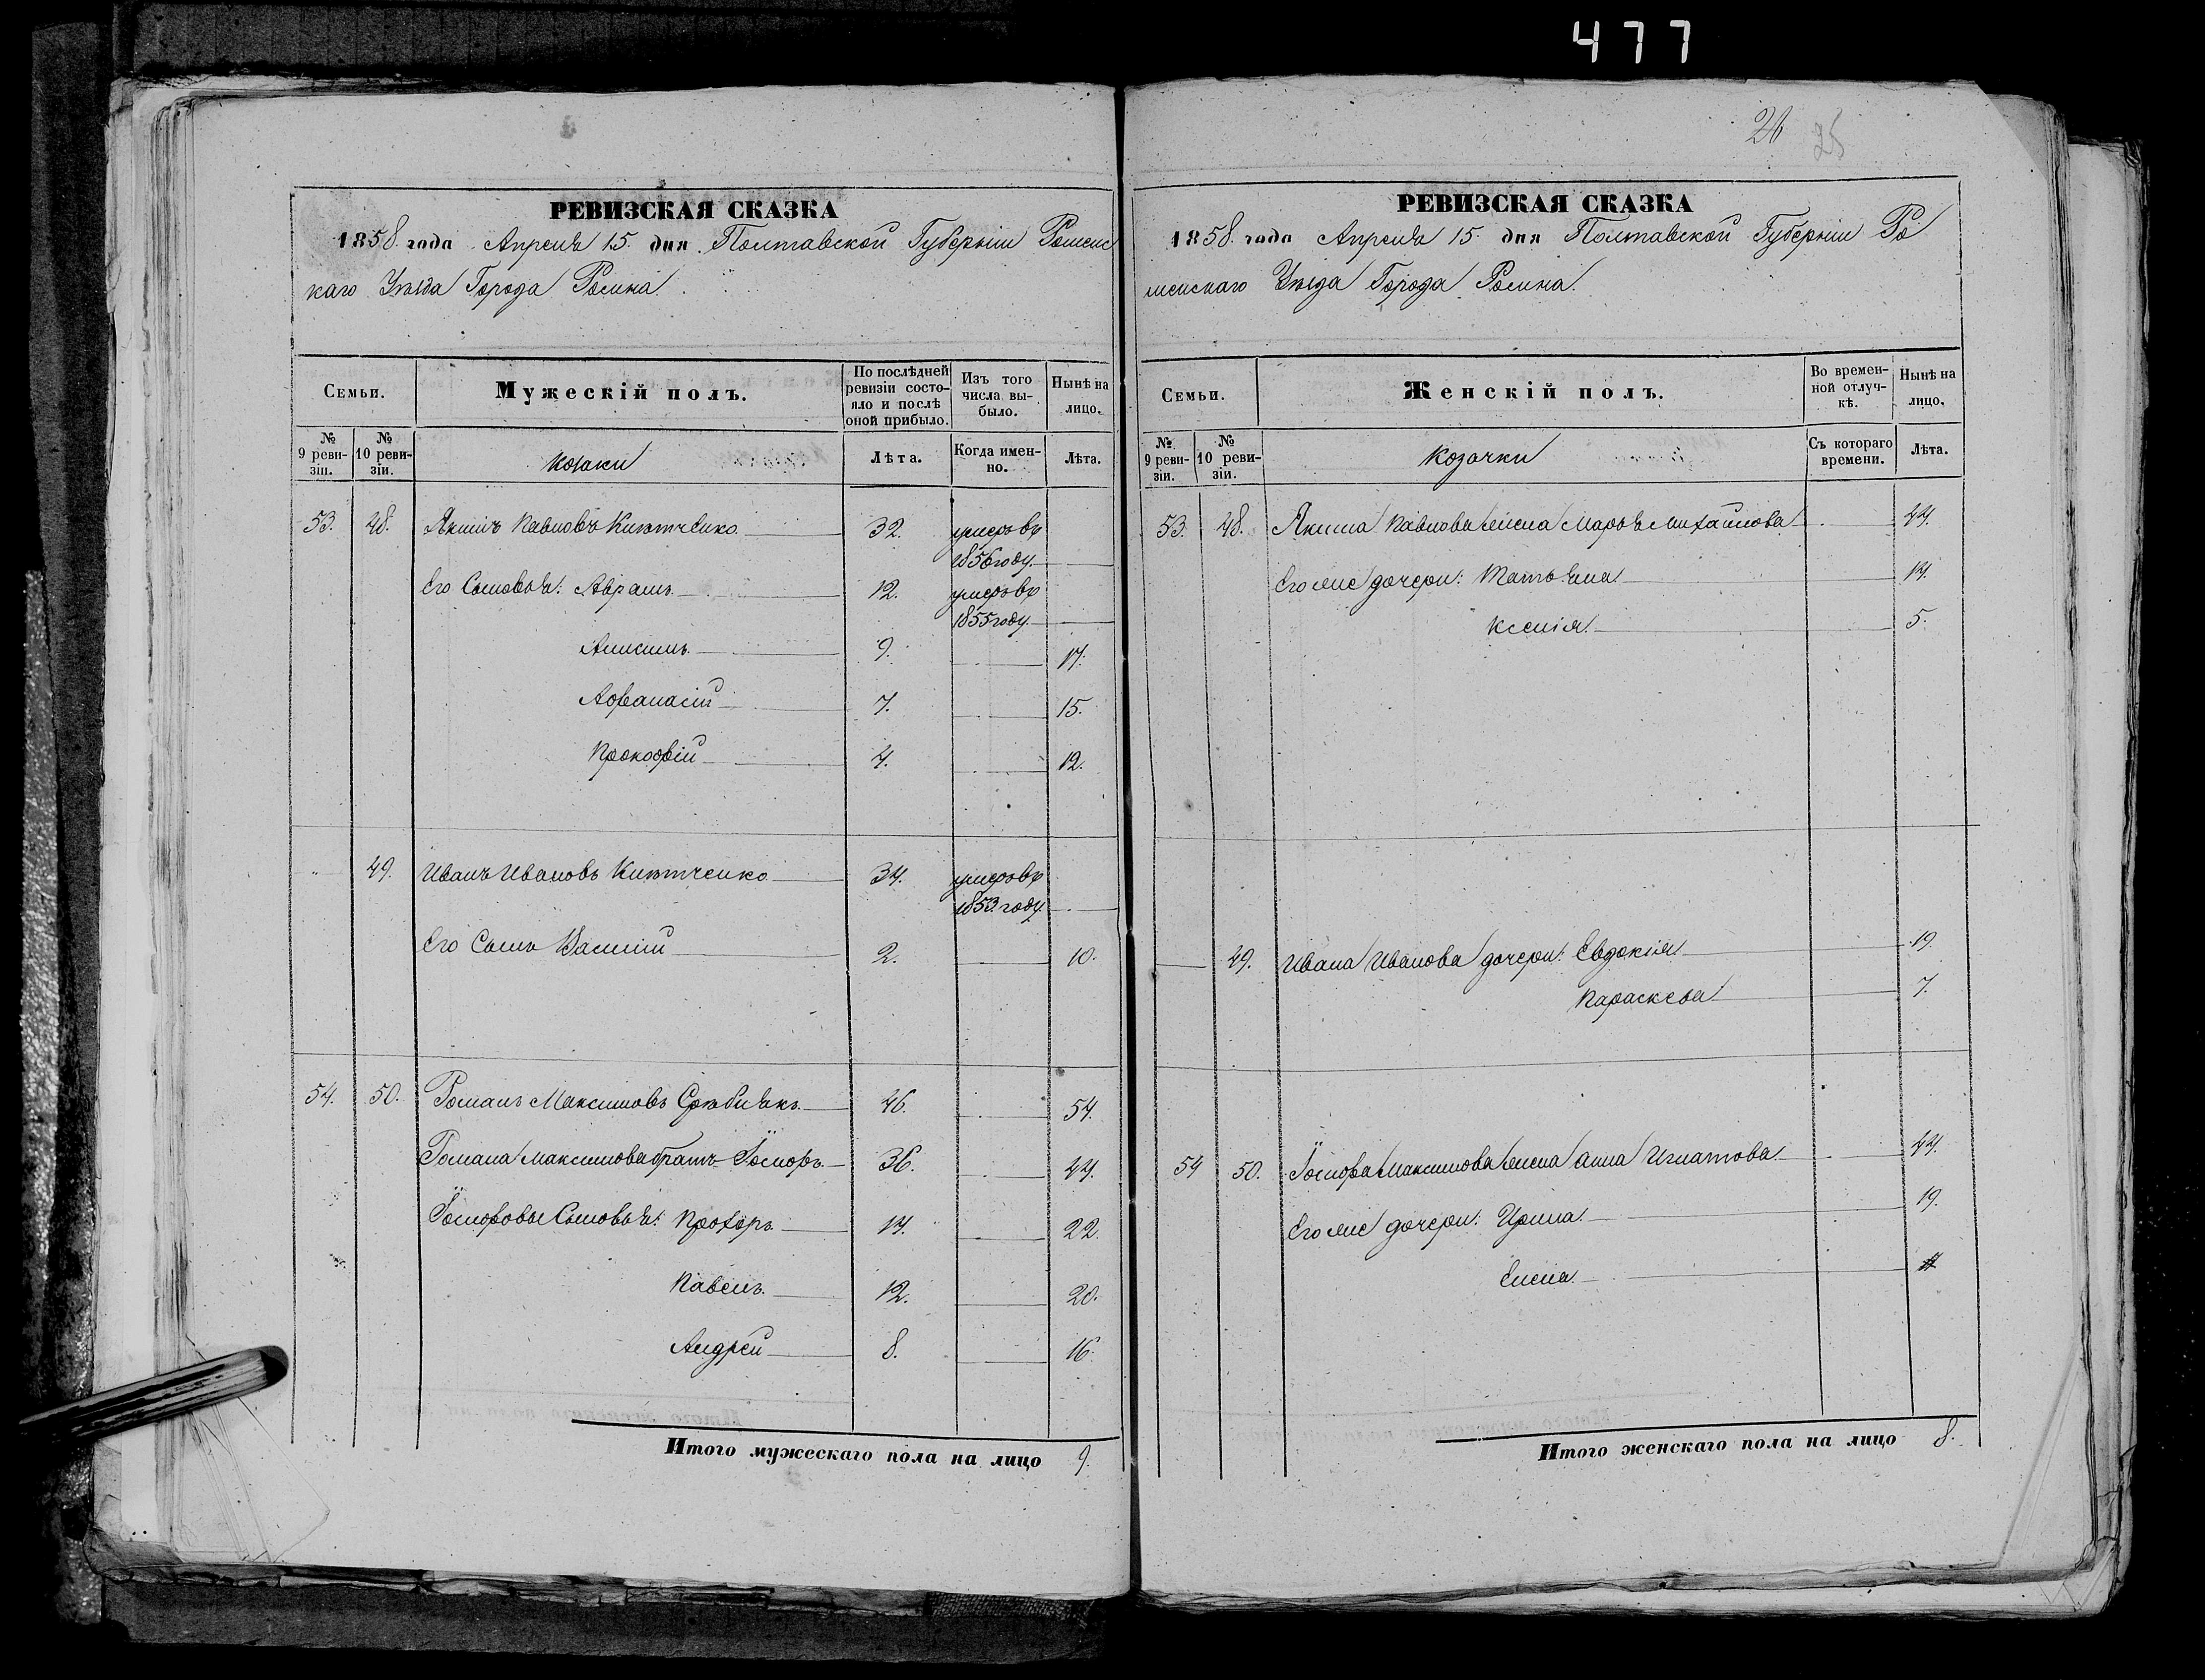 477
26 25
РЕВИЗСКАЯ СКАЗКА
1858 года Апреля 15 дня Полтавской Губерніи Роменс
каго Уѣзда Города Ромна
Семьи.
Мужескій полъ.
По послѣдней ревизіи состояло и послѣ оной прибыло.
Изъ того числа выбыло.
Нынѣ на лицо.
№ 9 ревизіи.
№ 10 ревизіи.
козаки
Лѣта.
Когда именно.
Лѣта.
53. 48. Якимъ Павловъ 32. умеръ въ
1856 году
Его Сыновья: Аврамъ 12. умеръ въ
1855 году
Анисимъ 9. 17.
Афанасій 7. 15.
Прокофій 4. 12.
" 49. Иванъ Ивановъ 34. умеръ въ
1853 году
Его Сынъ Василій 2. 10.
54. 50. Романъ Максимовъ 46. 54.
Романа Максимова братъ 36. 44.
Сыновья: Прохоръ 14. 22.
Павелъ 12. 20.
Андрей 8. 16.
Итого мужескаго пола на лицо 9.
РЕВИЗСКАЯ СКАЗКА
1858 года Апреля 15 дня Полтавской Губерніи Ро
менскаго Уѣзда Города Ромна.
Семьи.
Женскій полъ.
Во временной отлучкѣ.
Нынѣ на лицо.
№ 9 ревизіи.
№ 10 ревизіи.
козачки
Съ котораго времени.
Лѣта.
53. 48. Якима Павлова жена Марья Михайлова 44.
Его же дочери: Татьяна 14.
Ксенія 5.
49. Ивана Иванова дочери: Евдокія 19.
Параскева 7.
54 50. Максимова жена Анна Игнатова 44.
Его же дочери: Ирина 19.
Елена
Итого женскаго пола на лицо 8.